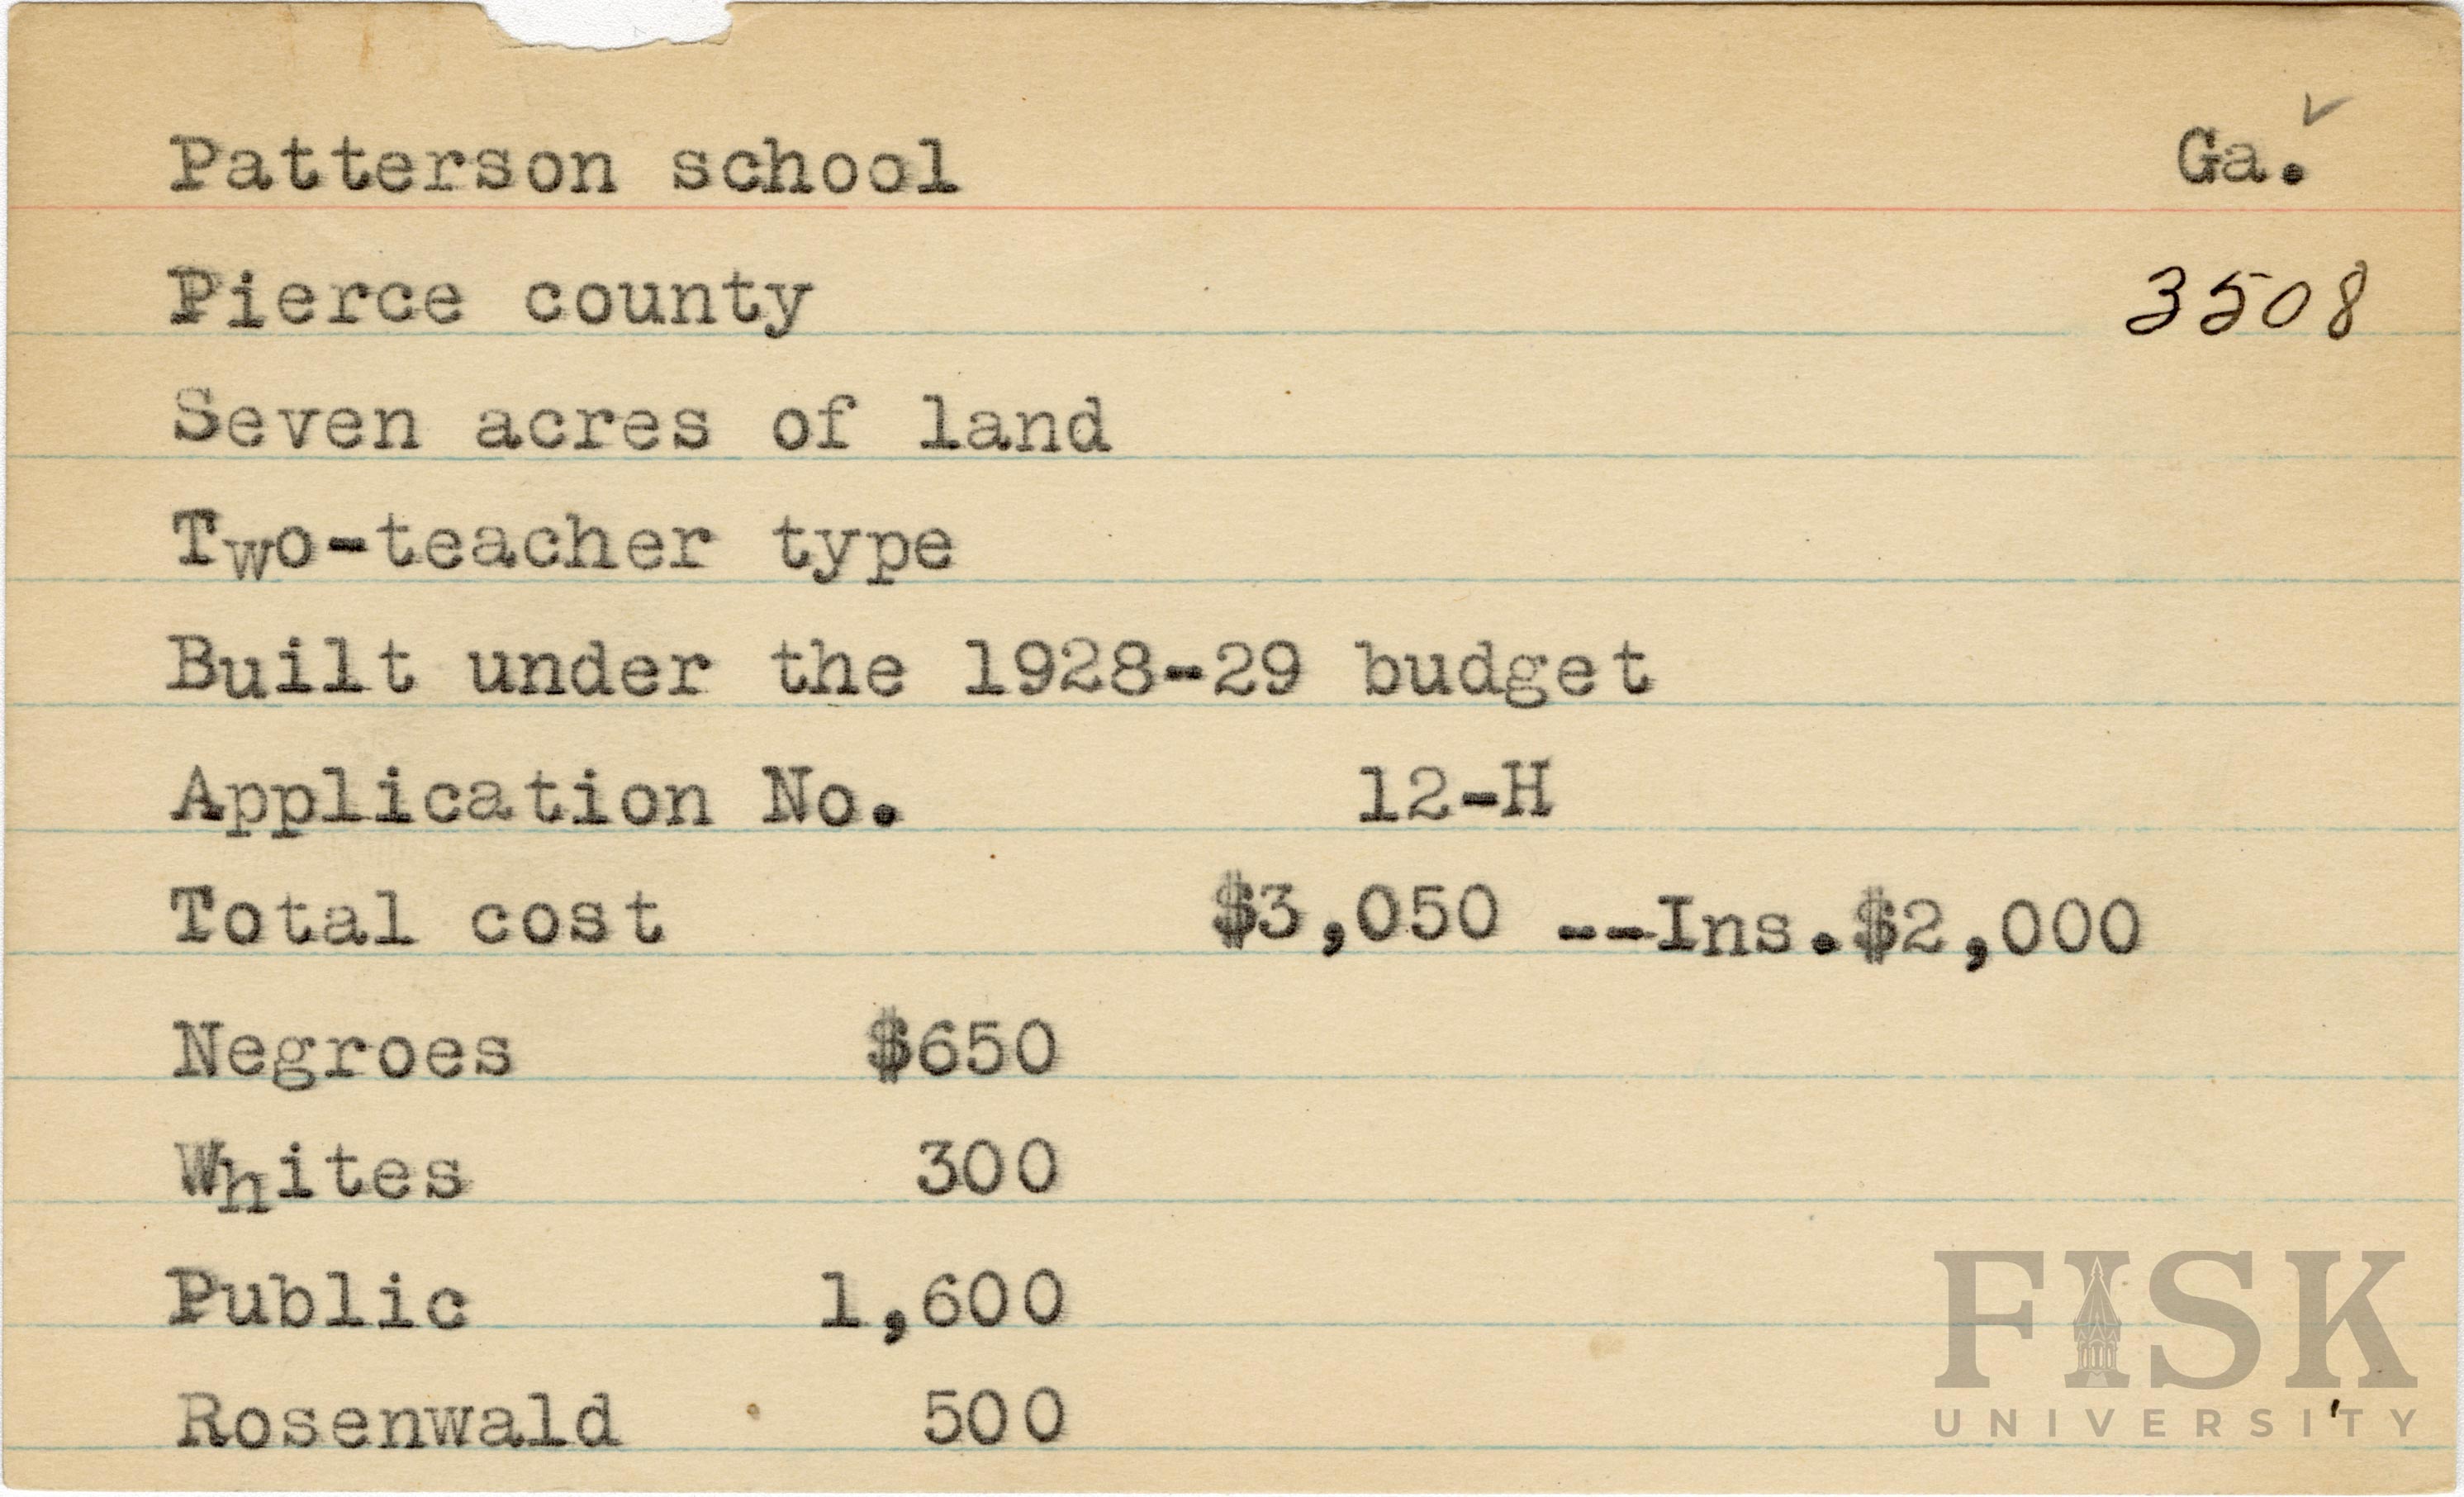 Patterson school Ga.
Pierce county 3508
Seven acres of land
Two-teacher type
Built under the 1928-29 budget
Application No. 12-H
Total cost $3,050 --Ins.$2,000
Negroes $650
Whites 300
Public 1,600
Rosenwald 500
FISK
UNIVERSITY